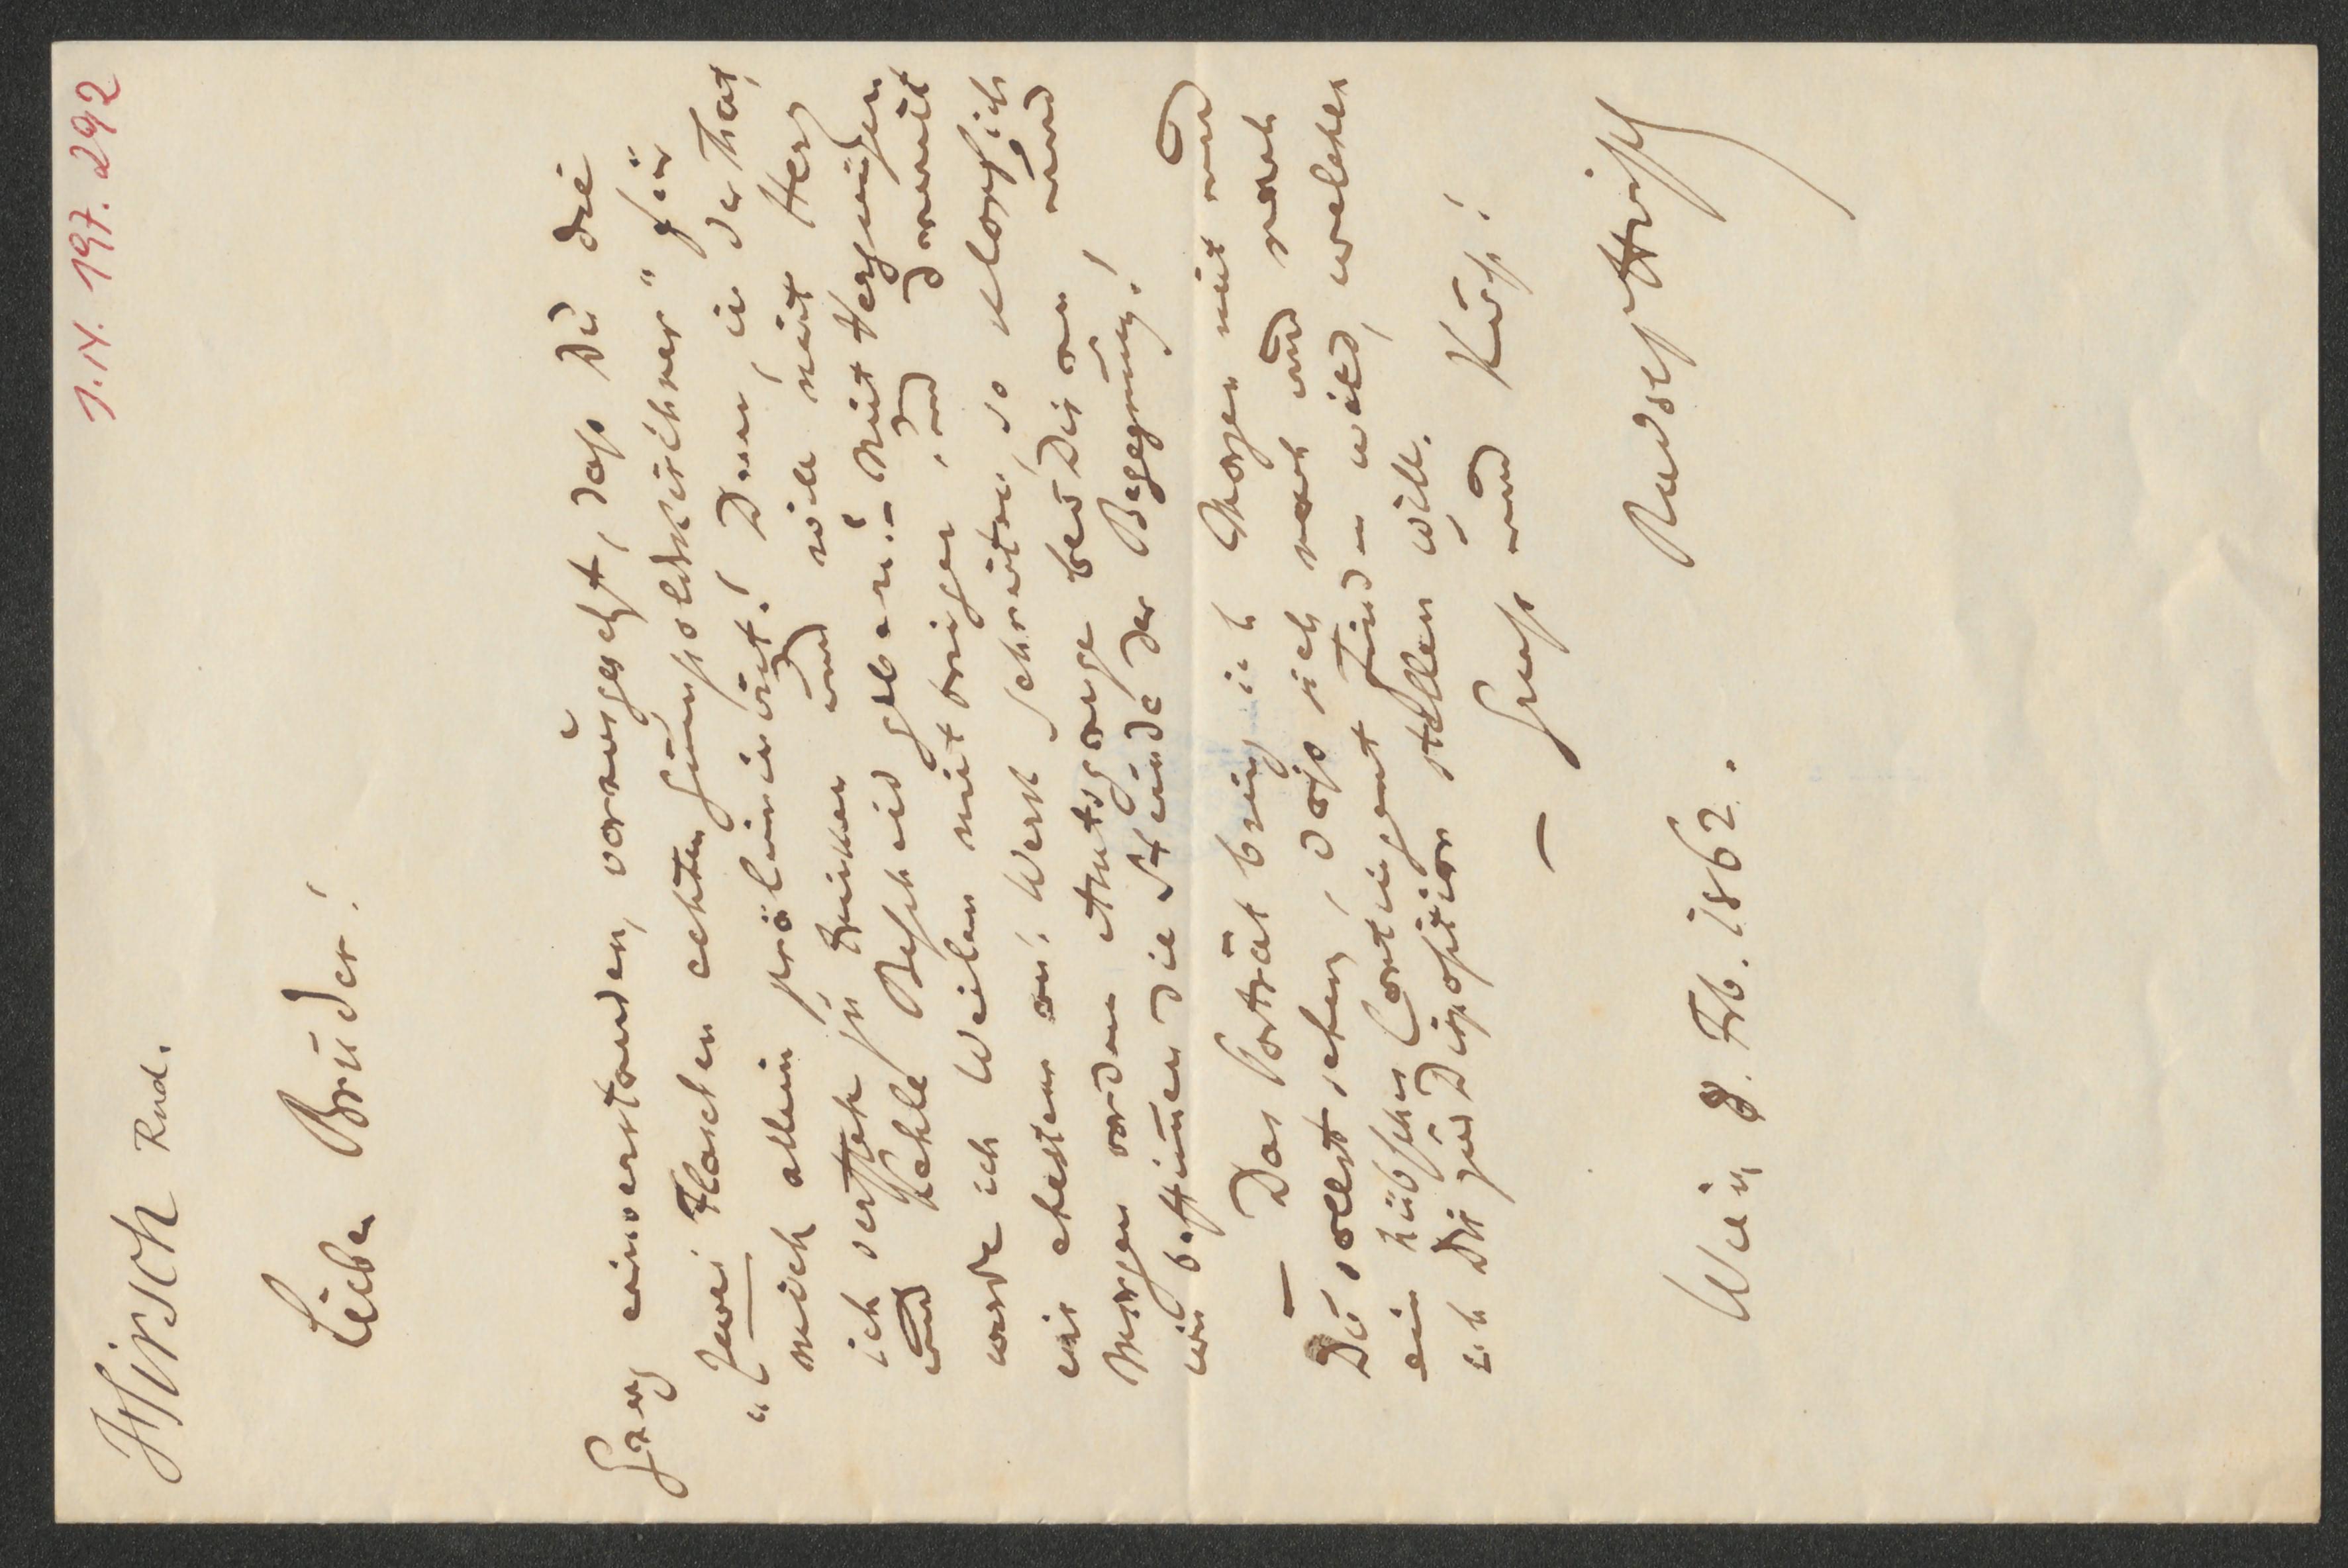 J.N. 197.292
Hirsch Rud.
Lieber Bruder!
Ganz einverstanden, vorausgesetzt, dass Du die
"zwei Flaschen echten Gumpoldskirchner" für
mich allein präliminirst! Denn, in der That,
ich verstehe zu trinken und will mit Herz
und Kehle Bescheid geben. – Mit Vergnügen
werde ich Weilen mitbringen, und damit
wir ehestens an's Werk schreiten, so klopf' ich
Morgen an Dein und
wir bestimmen die Stunde der Begegnung!
– Das Porträt bring' ich Morgen mit und
Du sollst sehen, dass sich noch und noch
ein hübsches Contingent finden wird, welches
ich Dir zur Disposition stellen will.
– Gruß und Kuß!
Rudolf Hirsch
Wien, 8. Feb. 1862.